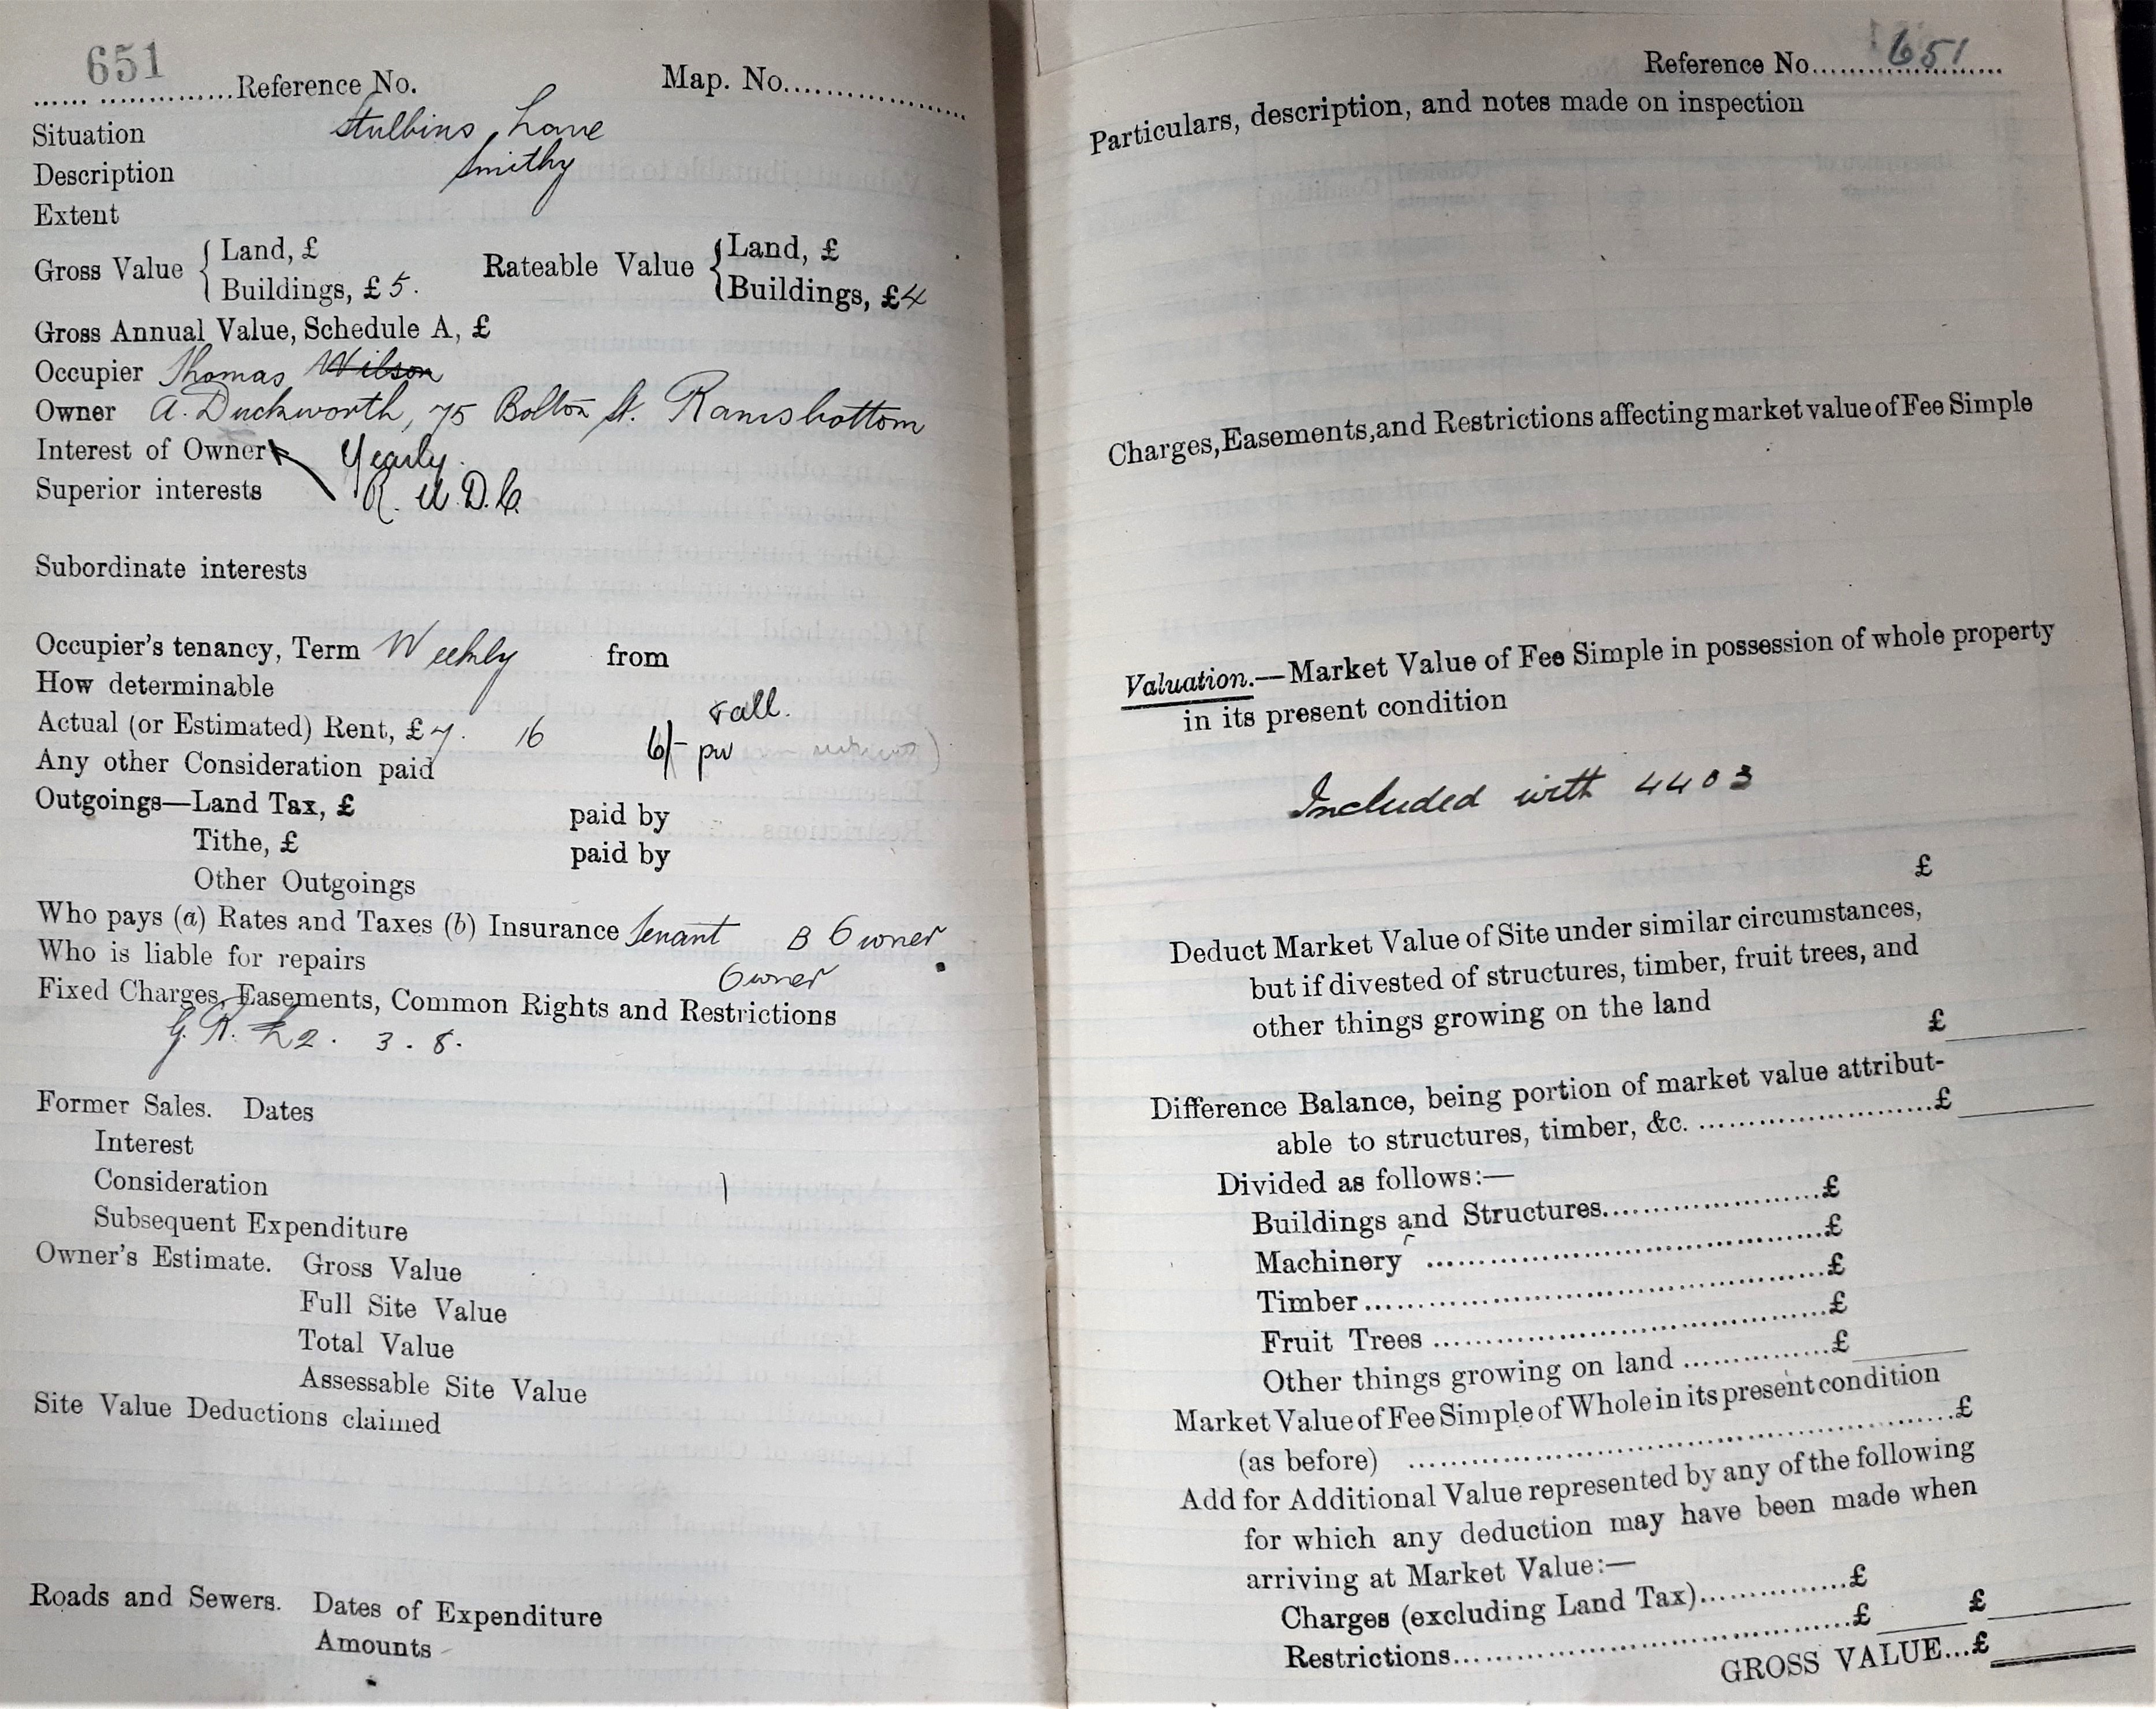 651
Reference No. Map. No.
Situation Stubbins Lane
Description Smithy
Extent
Gross Value { Land, £ Rateable Value { Land, £
Buildings, £ 5. Buildings, £4
Gross Annual Value, Schedule A, £
Occupier Thomas Wilson
Owner A. Duckworth, 75 Bolton St. Ramsbottom
Interest of Owner Yearly.
Superior interests R. U. D. C.
Subordinate interests
Occupier's tenancy, Term Weekly from
How determinable
&all.
Actual (or Estimated) Rent, £ 7. 16 6/- pw
Any other Consideration paid
Outgoings—Land Tax, £ paid by
Tithe, £ paid by
Other Outgoings
Who pays (a) Rates and Taxes (b) Insurance Tenant B Owner
Who is liable for repairs Owner
Fixed Charges, Easements, Common Rights and Restrictions
G. R. £2. 3. 8.
Former Sales. Dates
Interest
Consideration
Subsequent Expenditure
Owner's Estimate. Gross Value
Full Site Value
Total Value
Assessable Site Value
Site Value Deductions claimed
Roads and Sewers. Dates of Expenditure
Amounts
Reference No. 651
Particulars, description, and notes made on inspection
Charges, Easements, and Restrictions affecting market value of Fee Simple
Valuation.—Market Value of Fee Simple in possession of whole property
in its present condition
Included with 4403
£
Deduct Market Value of Site under similar circumstances,
but if divested of structures, timber, fruit trees, and
other things growing on the land
£
Difference Balance, being portion of market value attribut-
able to structures, timber, &c. £
Divided as follows:—
Buildings and Structures £
Machinery £
Timber £
Fruit Trees £
Other things growing on land £
Market Value of Fee Simple of Whole in its present condition
(as before) £
Add for Additional Value represented by any of the following
for which any deduction may have been made when
arriving at Market Value:—
Charges (excluding Land Tax) £
Restrictions £ £
GROSS VALUE...£